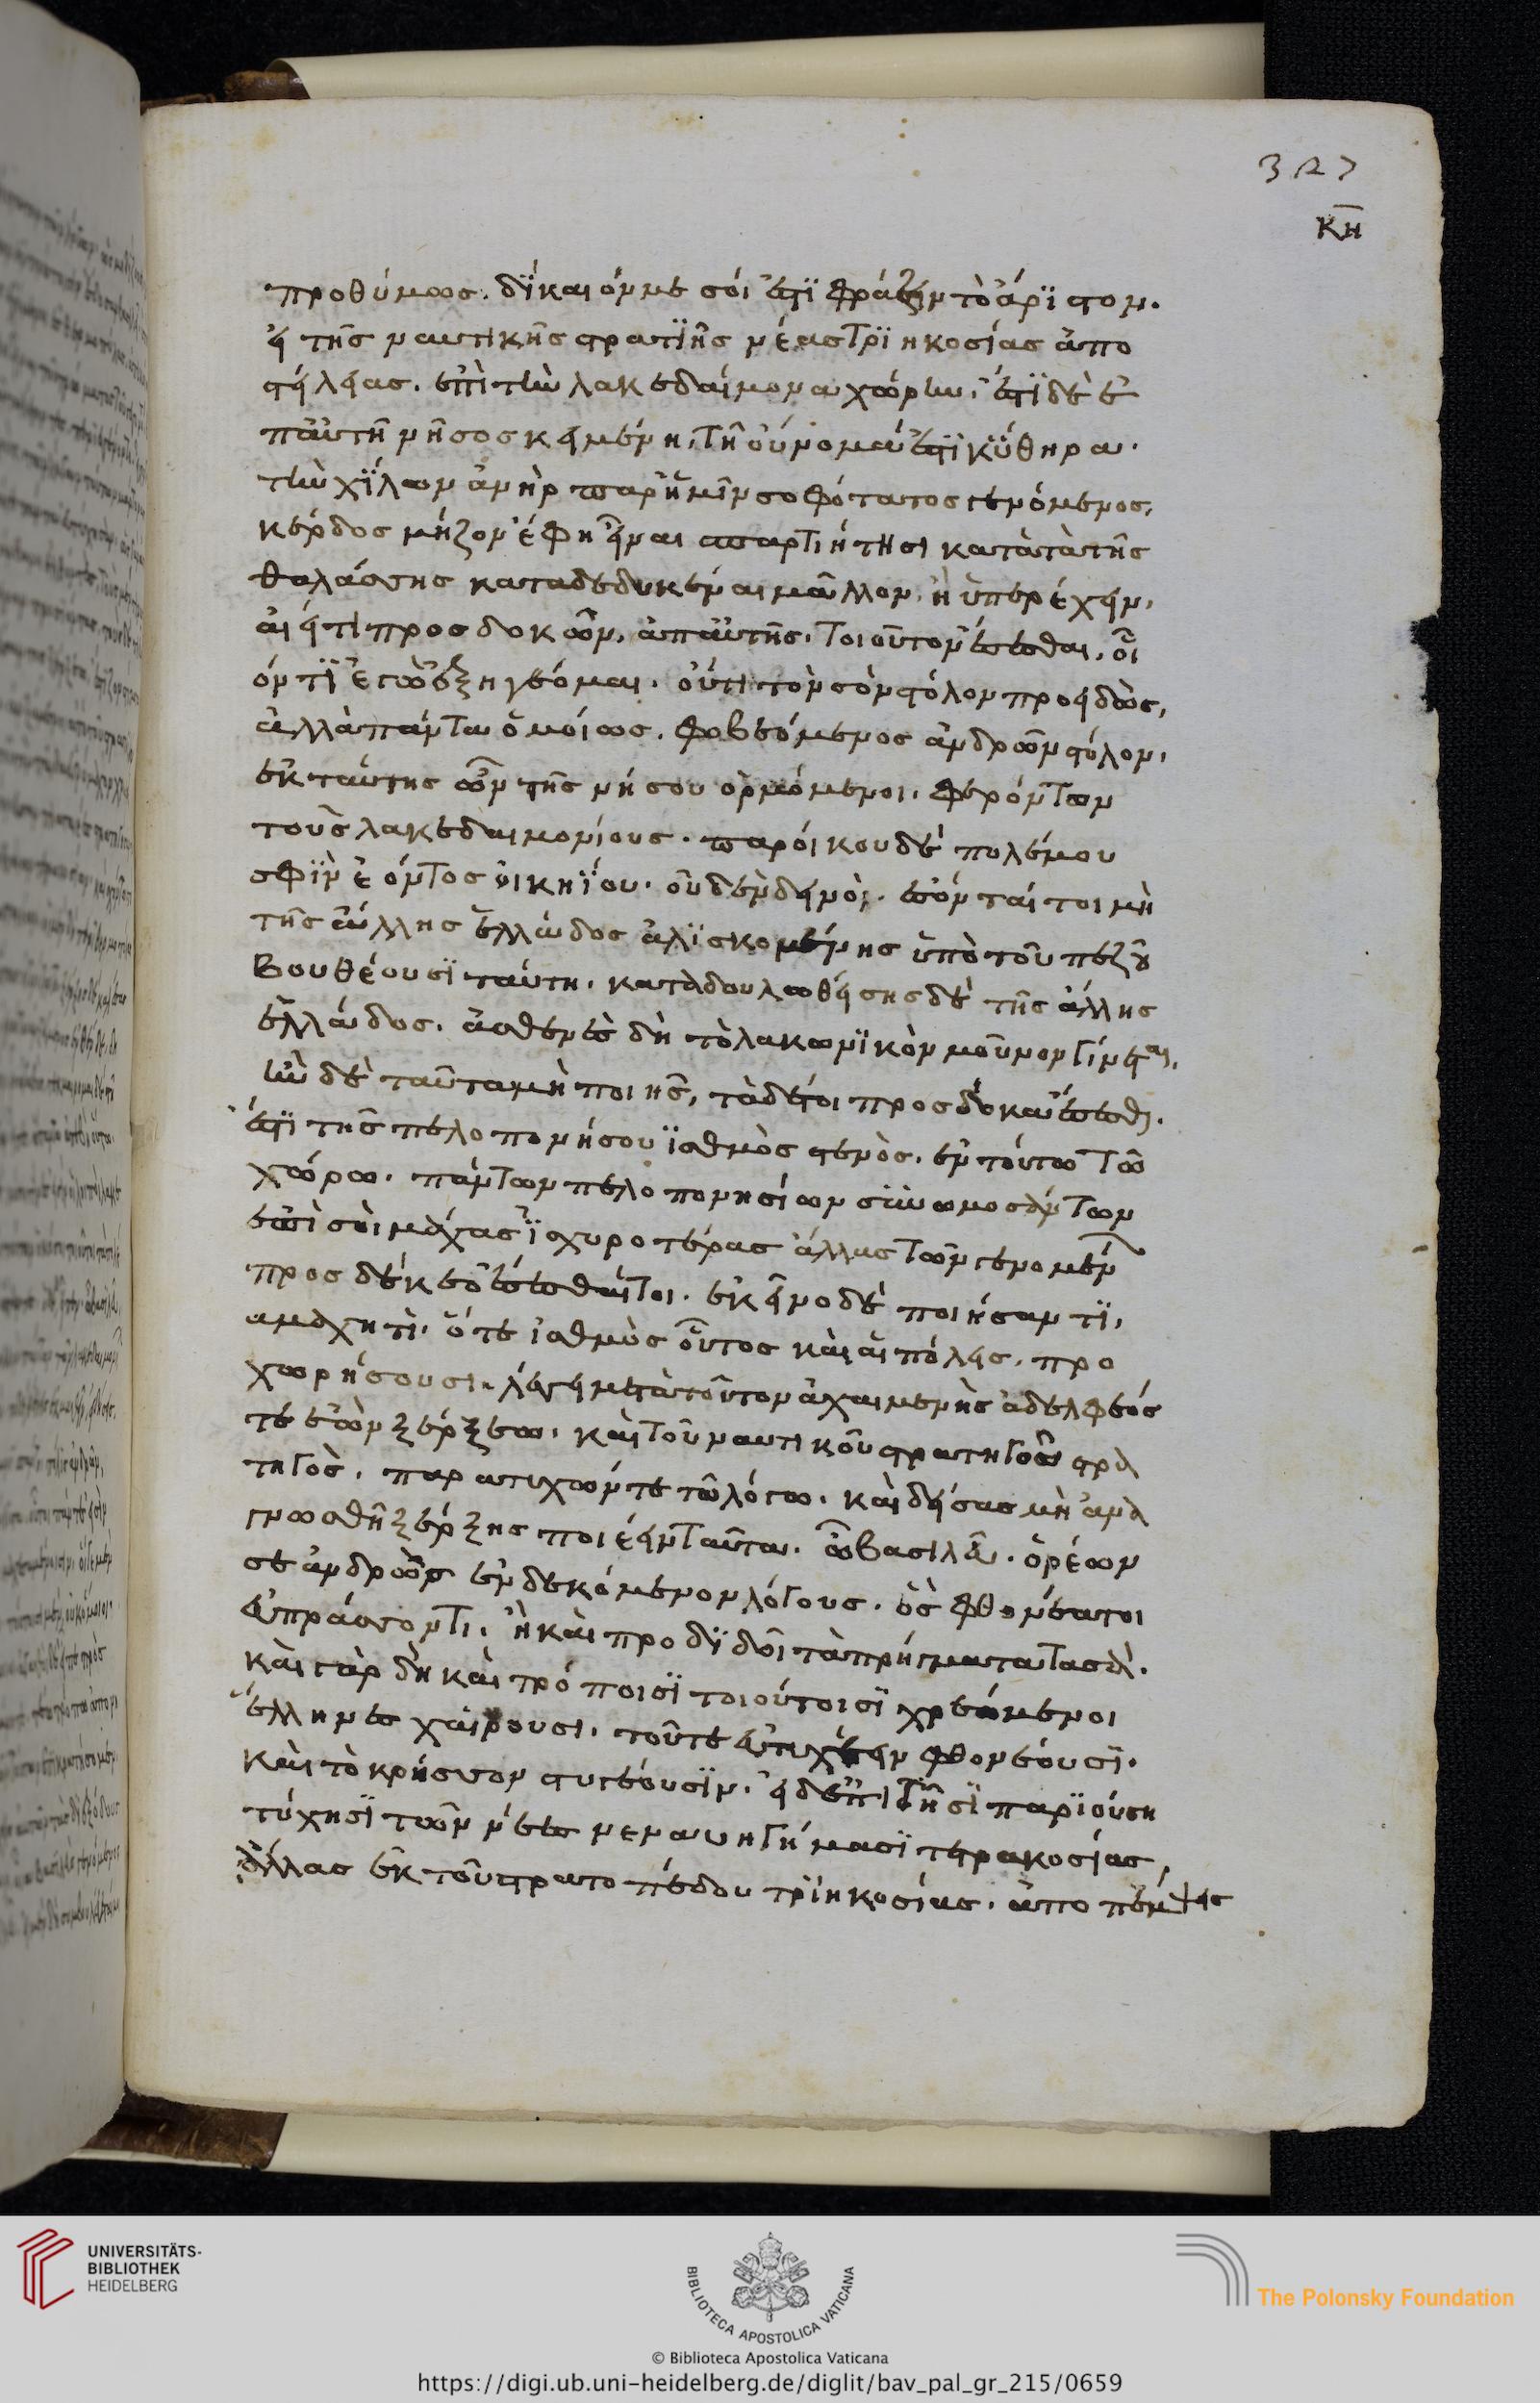 327
κη
προθύμως. δίκαιόν με σοί ἐστι φράζειν τὸ ἄριστον.
εἰ τῆς ναυτικῆς στρατιῆς νέας τριηκοσίας ἀπο
στείλειας. ἐπὶ τὴν λακεδαίμονα χώρην. ἔστι δὲ ἐ
π' αὐτῆ νῆσος κειμένη. τῆ οὔνομα ἐστι κύθηρα.
τὴν χίλων ἀνὴρ παρ' ἡμῖν σοφότατος γενόμενος,
κέρδος μεῖζον ἔφη εἶναι σπαρτιήτησι κατὰ τὰ τῆς
θαλάσσης καταδεδυκέναι μᾶλλον, ἢ ὑπερέχειν,
αἰεί τι προσδοκῶν, ἀπ' αὐτῆς. τοιοῦτον ἔσεσθαι, οἷ
όν τι ἐγὼ ἐξηγέομαι. οὔτι τὸν σὸν στόλον προειδὼς,
ἀλλὰ πάντα ὁμοίως. φοβεόμενος ἀνδρῶν στόλον,
ἐκ ταύτης ὦν τῆς νήσου ὁρμεόμενοι. φερόντων
τοὺς λακεδαιμονίους. παροίκου δὲ πολέμου
σφιν ἐόντος οἰκηίου. οὐδὲν δεινοὶ. ἔσονταί τοι μὴ
τῆς ἄλλης ἑλλάδος ἁλισκομένης ὑπὸ τοῦ πεζοῦ
βουθέουσι ταύτη. καταδουλωθείσης δὲ τῆς ἄλλης
ἑλλάδος. ἀσθενὲς δὴ τὸ λακωνικὸν μοῦνον γίνεται.
ἢν δὲ ταῦτα μὴ ποιῆς, τάδε τοι προσδόκα ἔσεσθαι.
ἔστι τῆς πελοποννήσου ἰσθμὸς στενὸς. ἐν τούτω τῶ
χώρω. πάντων πελοποννησίων συνωμοσάντων
ἐπὶ σοὶ μάχας ἰσχυροτέρας ἄλλας τῶν γενομένων
προσδέκεο ἔσεσθαί τοι. ἐκεῖνο δὲ ποιήσαντι,
ἀμαχητὶ. ὅ τε ἰσθμὸς οὗτος καὶ αἱ πόλεις. προ
χωρήσουσι. λέγει μετὰ τοῦτον ἀχαιμένης ἀδελφεός
τε ἐὼν ξέρξεω. καὶ τοῦ ναυτικοῦ στρατηγοῦ στρα
τηγὸς. παρατυχών τε τῶ λόγω. καὶ δείσας μὴ ἀνα
γνωσθῆ ξέρξης ποιέειν ταῦτα. ὦ βασιλεῦ. ὁρέων
σε ἀνδρὸς ἐνδεκόμενον λόγους. ὃς φθονέει τοι
εὖ πράσσοντι. ἢ καὶ προδιδοῖ τὰ πρήγματα τὰ σά.
καὶ γὰρ δὴ καὶ τρόποισι τοιούτοισι χρεώμενοι
ἕλληνες χαίρουσι. τοῦ τε εὐτυχέειν φθονέουσι.
καὶ τὸ κρήσσον στυγέουσιν. εἰ δ' ἐπὶ τῆσι παριούση
τύχησι τῶν νέες νεναυηγήκασι τετρακοσίας,
ἄλλας ἐκ τοῦ στρατοπέδου τριηκοσίας. ἀποπέμψεις
UNIVERSITÄTS-
BIBLIOTHEK
HEIDELBERG
BIBLIOTECA APOSTOLICA VATICANA
The Polonsky Foundation
© Biblioteca Apostolica Vaticana
https://digi.ub.uni-heidelberg.de/diglit/bav_pal_gr_215/0659